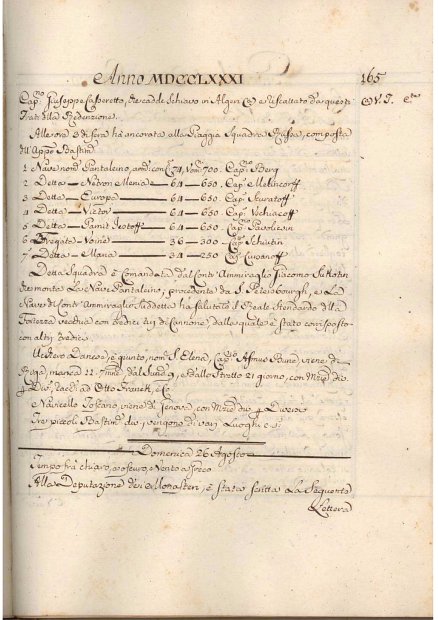 Anno MDCCLXXXI
165
Cap.no Giuseppe Casseretto, decade Schiavo in Algeri e riscattato da questi
Trati della Redenzione.
Alle ore 3 di sera hà ancorato alla Piaggia Squadra Russa, composta
dell' App.o Bastim.ti
1 Nave nom. Pantaleino, arm. con C. 74, Uom. 700. Cap.no Berg
2 Detta — Netron Menia — 64 — 650. Cap.
3 Detta — Europa — 64 — 650. Cap. Scuratoff
4 Detta — Victor — 64 — 650. Cap.
5 Detta — Pamit Jestoff — 64 — 650. Cap.
6 Fregata — Voine — 36 — 300. Cap. Schiutin
7 Detta — Maria — 34 — 250 Cap.
Detta Squadra è Comandata dal Contr'Ammiraglio Giacomo Sukotin
che monta La Nave Pantaleino; proceduta da S. Petersbourgh, e La
Nave di Contr'Ammiraglio Suddetta ha salutato il Reale Stendardo della
Fortezza vecchia con tredici tiri di Cannone, dalla quale è stato corrisposto
con altri tredici.
Uckero Danese, è giunto, nom. S. Elena, Cap.no Asmus Bune, viene di
Riga, manca 22. dal Sund 9, e dallo Stretto 21 giorno, con Merci div.
p Div. racc. ad Otto Franck, e C.
Navicello Toscano, viene di Genova con Merci div. p Diversi
Tre piccoli Bastim. div. vengono di vari Luoghi e. s.
Domenica 26 Agosto
Tempo frà chiaro, e oscuro, e Vento a Greco
Alla Deputazione dei Monasteri, è stata scritta La Seguente
Lettera